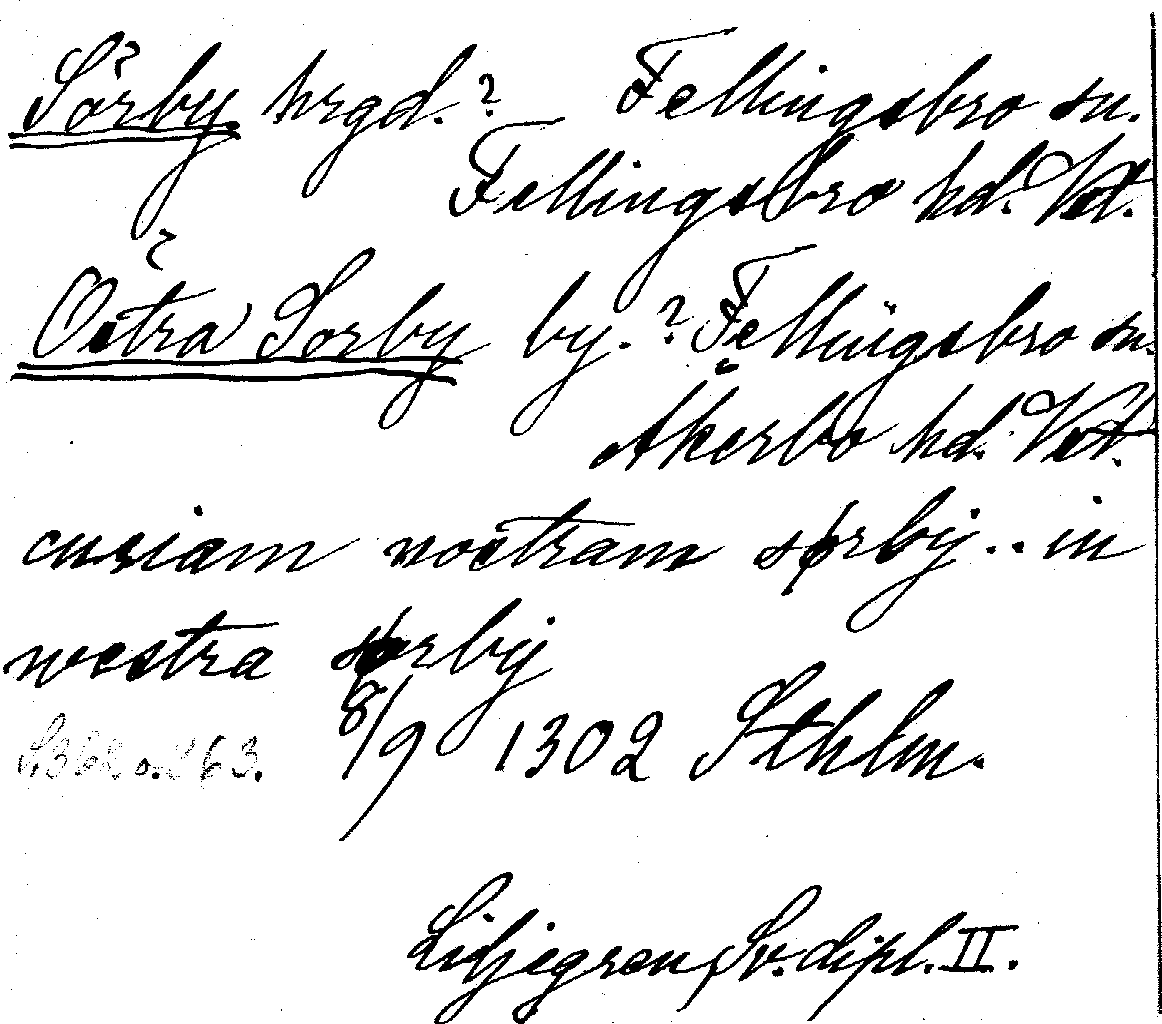 Sörby hrgd.? Fellingsbro sn.
Fellingsbro hd. Vst.
Östra Sörby by.? Fellingsbro sn.
Åkerbo hd. Vst.
curiam nostram sørbÿ.. in
nostra sørbÿ
S. 362 o. 363. 8/9 1302 Sthlm.
Liljegren, Sv. dipl. II.